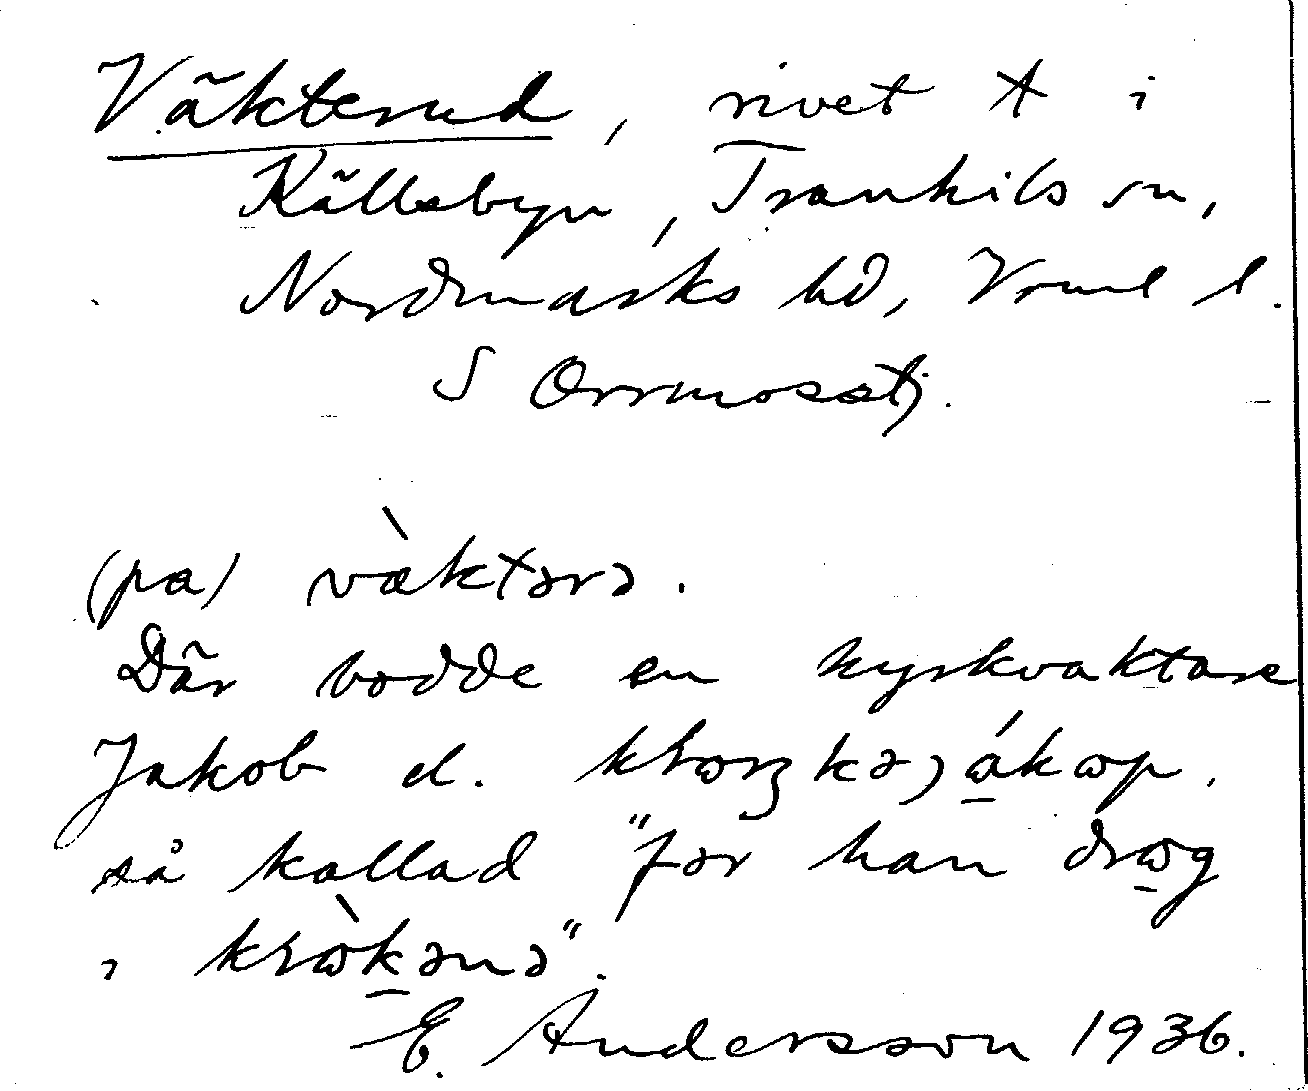 Väkterud, rivet t i
Källsbyn, Trankils sn,
Nordmarks hd, Vrml l.
S Orrmosstj.
(pa) væ̀ktərə.
Där bodde en kyrkvaktare
Jakob d. jákɷp.
så kallad "fər han drɷg
i krɷ̀kənə".
E. Andersson 1936.